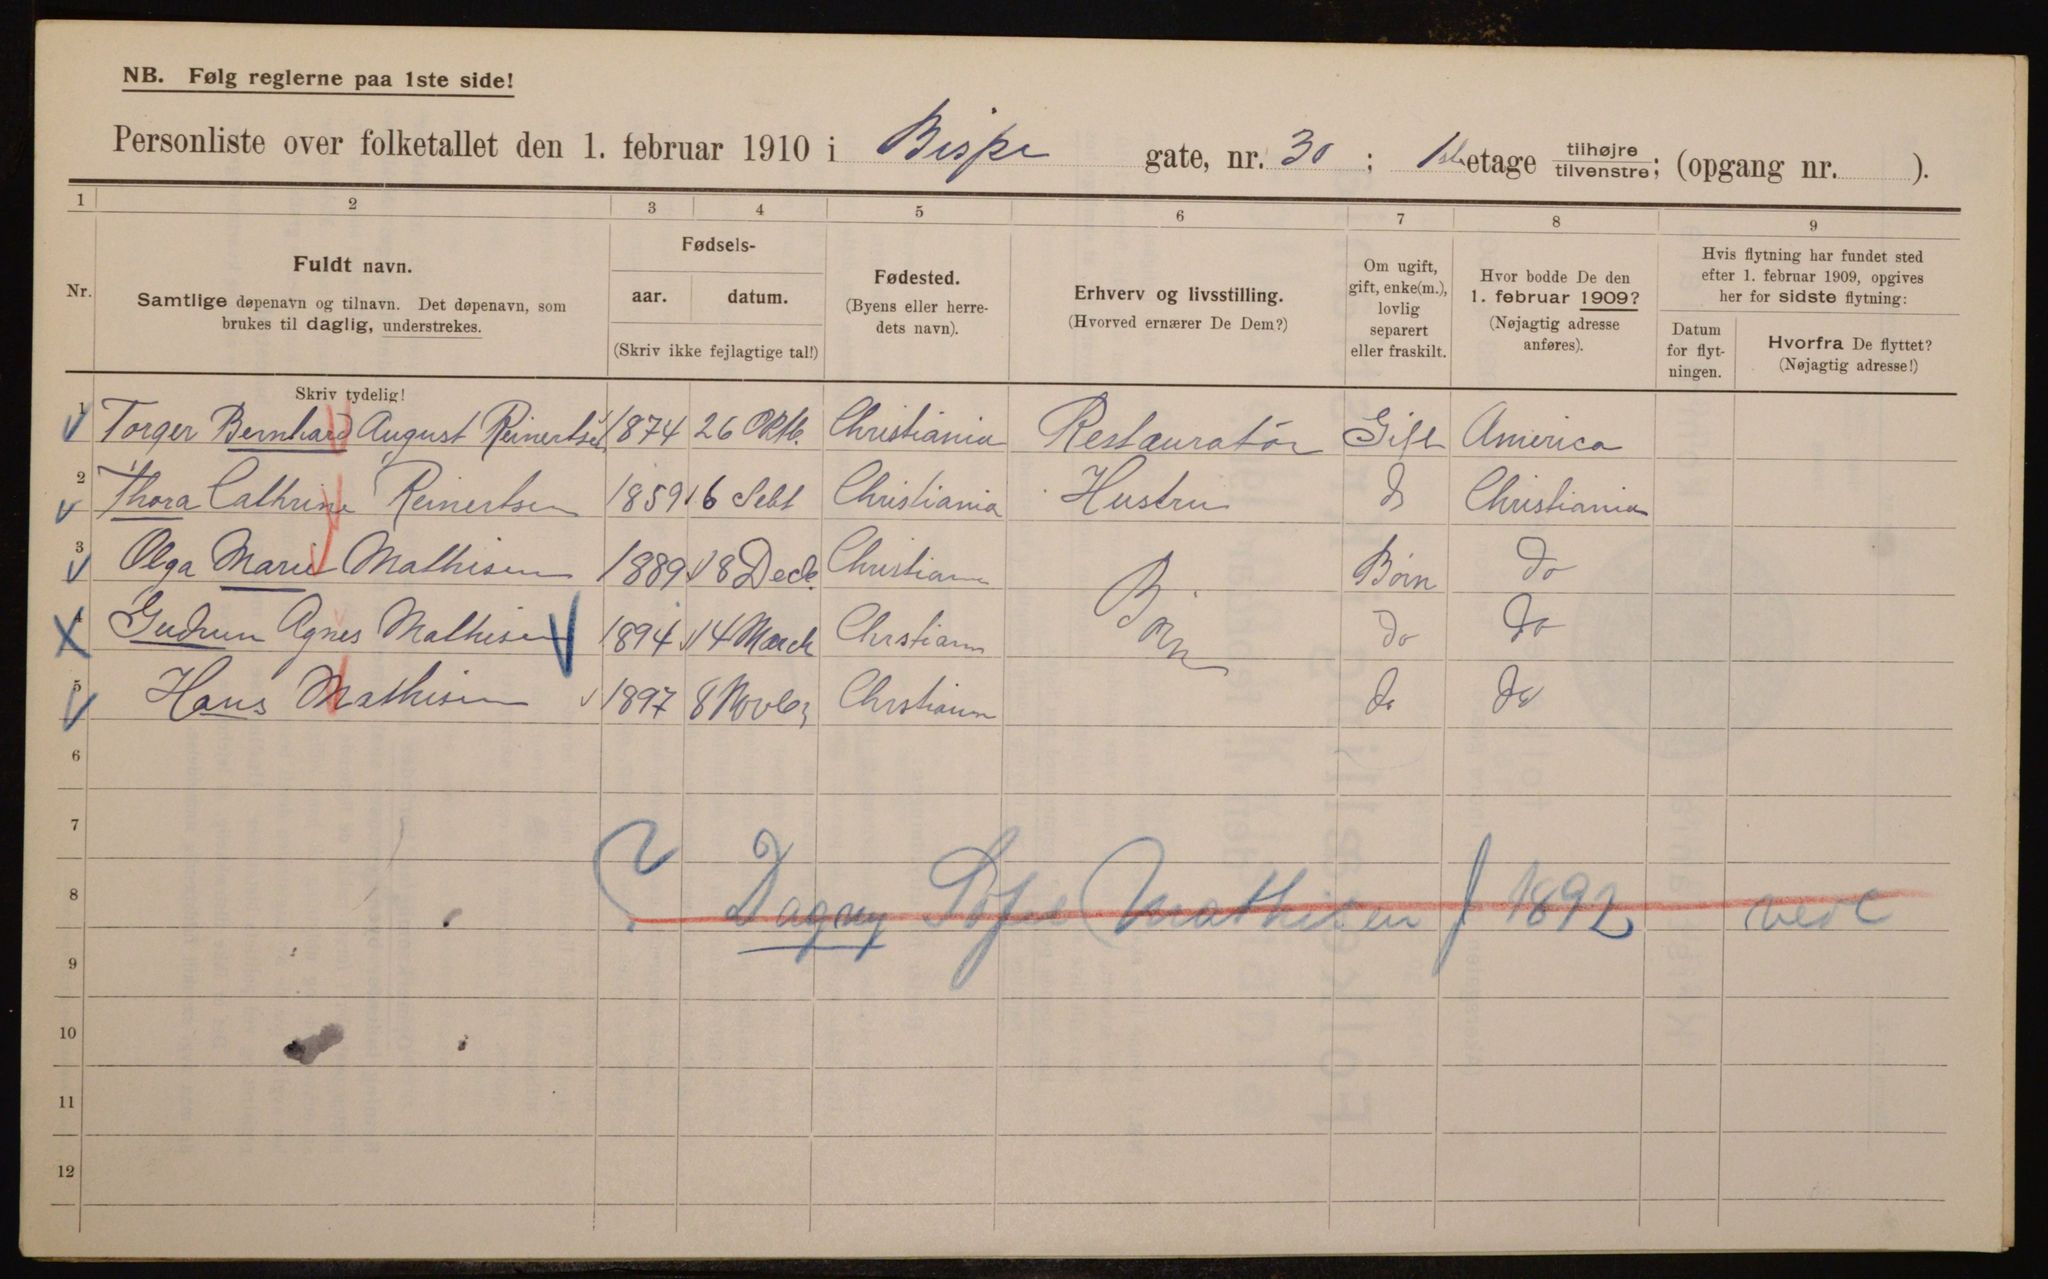 NB. Følg reglerne paa 1ste side!
Personliste over folketallet den 1. februar 1910 i Bispe gate, nr. 30 ; 1st etage tilhøjre/tilvenstre; (opgang nr. ).
1 2 3 4 5 6 7 8 9
Nr.
Fuldt navn.
Samtlige døpenavn og tilnavn. Det døpenavn, som
brukes til daglig, understrekes.
Skriv tydelig!
Fødsels-
aar. datum.
(Skriv ikke fejlagtige tal!)
Fødested.
(Byens eller herre-
dets navn).
Erhverv og livsstilling.
(Hvorved ernærer De Dem?)
Om ugift,
gift, enke(m.),
lovlig
separert
eller fraskilt.
Hvor bodde De den
1. februar 1909?
(Nøjagtig adresse
anføres).
Hvis flytning har fundet sted
efter 1. februar 1909, opgives
her for sidste flytning:
Datum
for flyt-
ningen.
Hvorfra De flyttet?
(Nøjagtig adresse!)
1 Torger Bernhard August Reinertsen 1874 26 Oktb. Christiania Restauratør Gift America
2 Thora Cathrine Reinertsen 1859 16 Sebt Christiania Hustru do Christiania
3 Olga Marie Mathisen 1889 18 Decb. Christiania Børn Børn do
4 Gudrun Agnes Mathisen 1894 14 March Chrstiann do do
5 Hans Mathisen 1897 8 Novbr Chrstiann do do
6
7
8 Dagny Sofie Mathisen f 1892
9
10
11
12